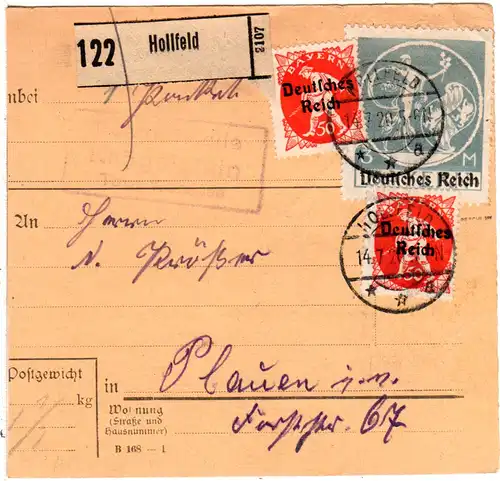 122 Hollfeld 2107
BAYERN
Deutsches
Reich
50
HOLLFELD
14.7.20
a
3 M
Deutsches Reich
nbei 1 Paket
An Herrn
Deutsches
Reich
50
14.7.2
a
N. Größer
Postgewicht
kg
in Plauen i. V.
Wohnung
(Straße und
Hausnummer)
Forststr. 67
B 168 — 1